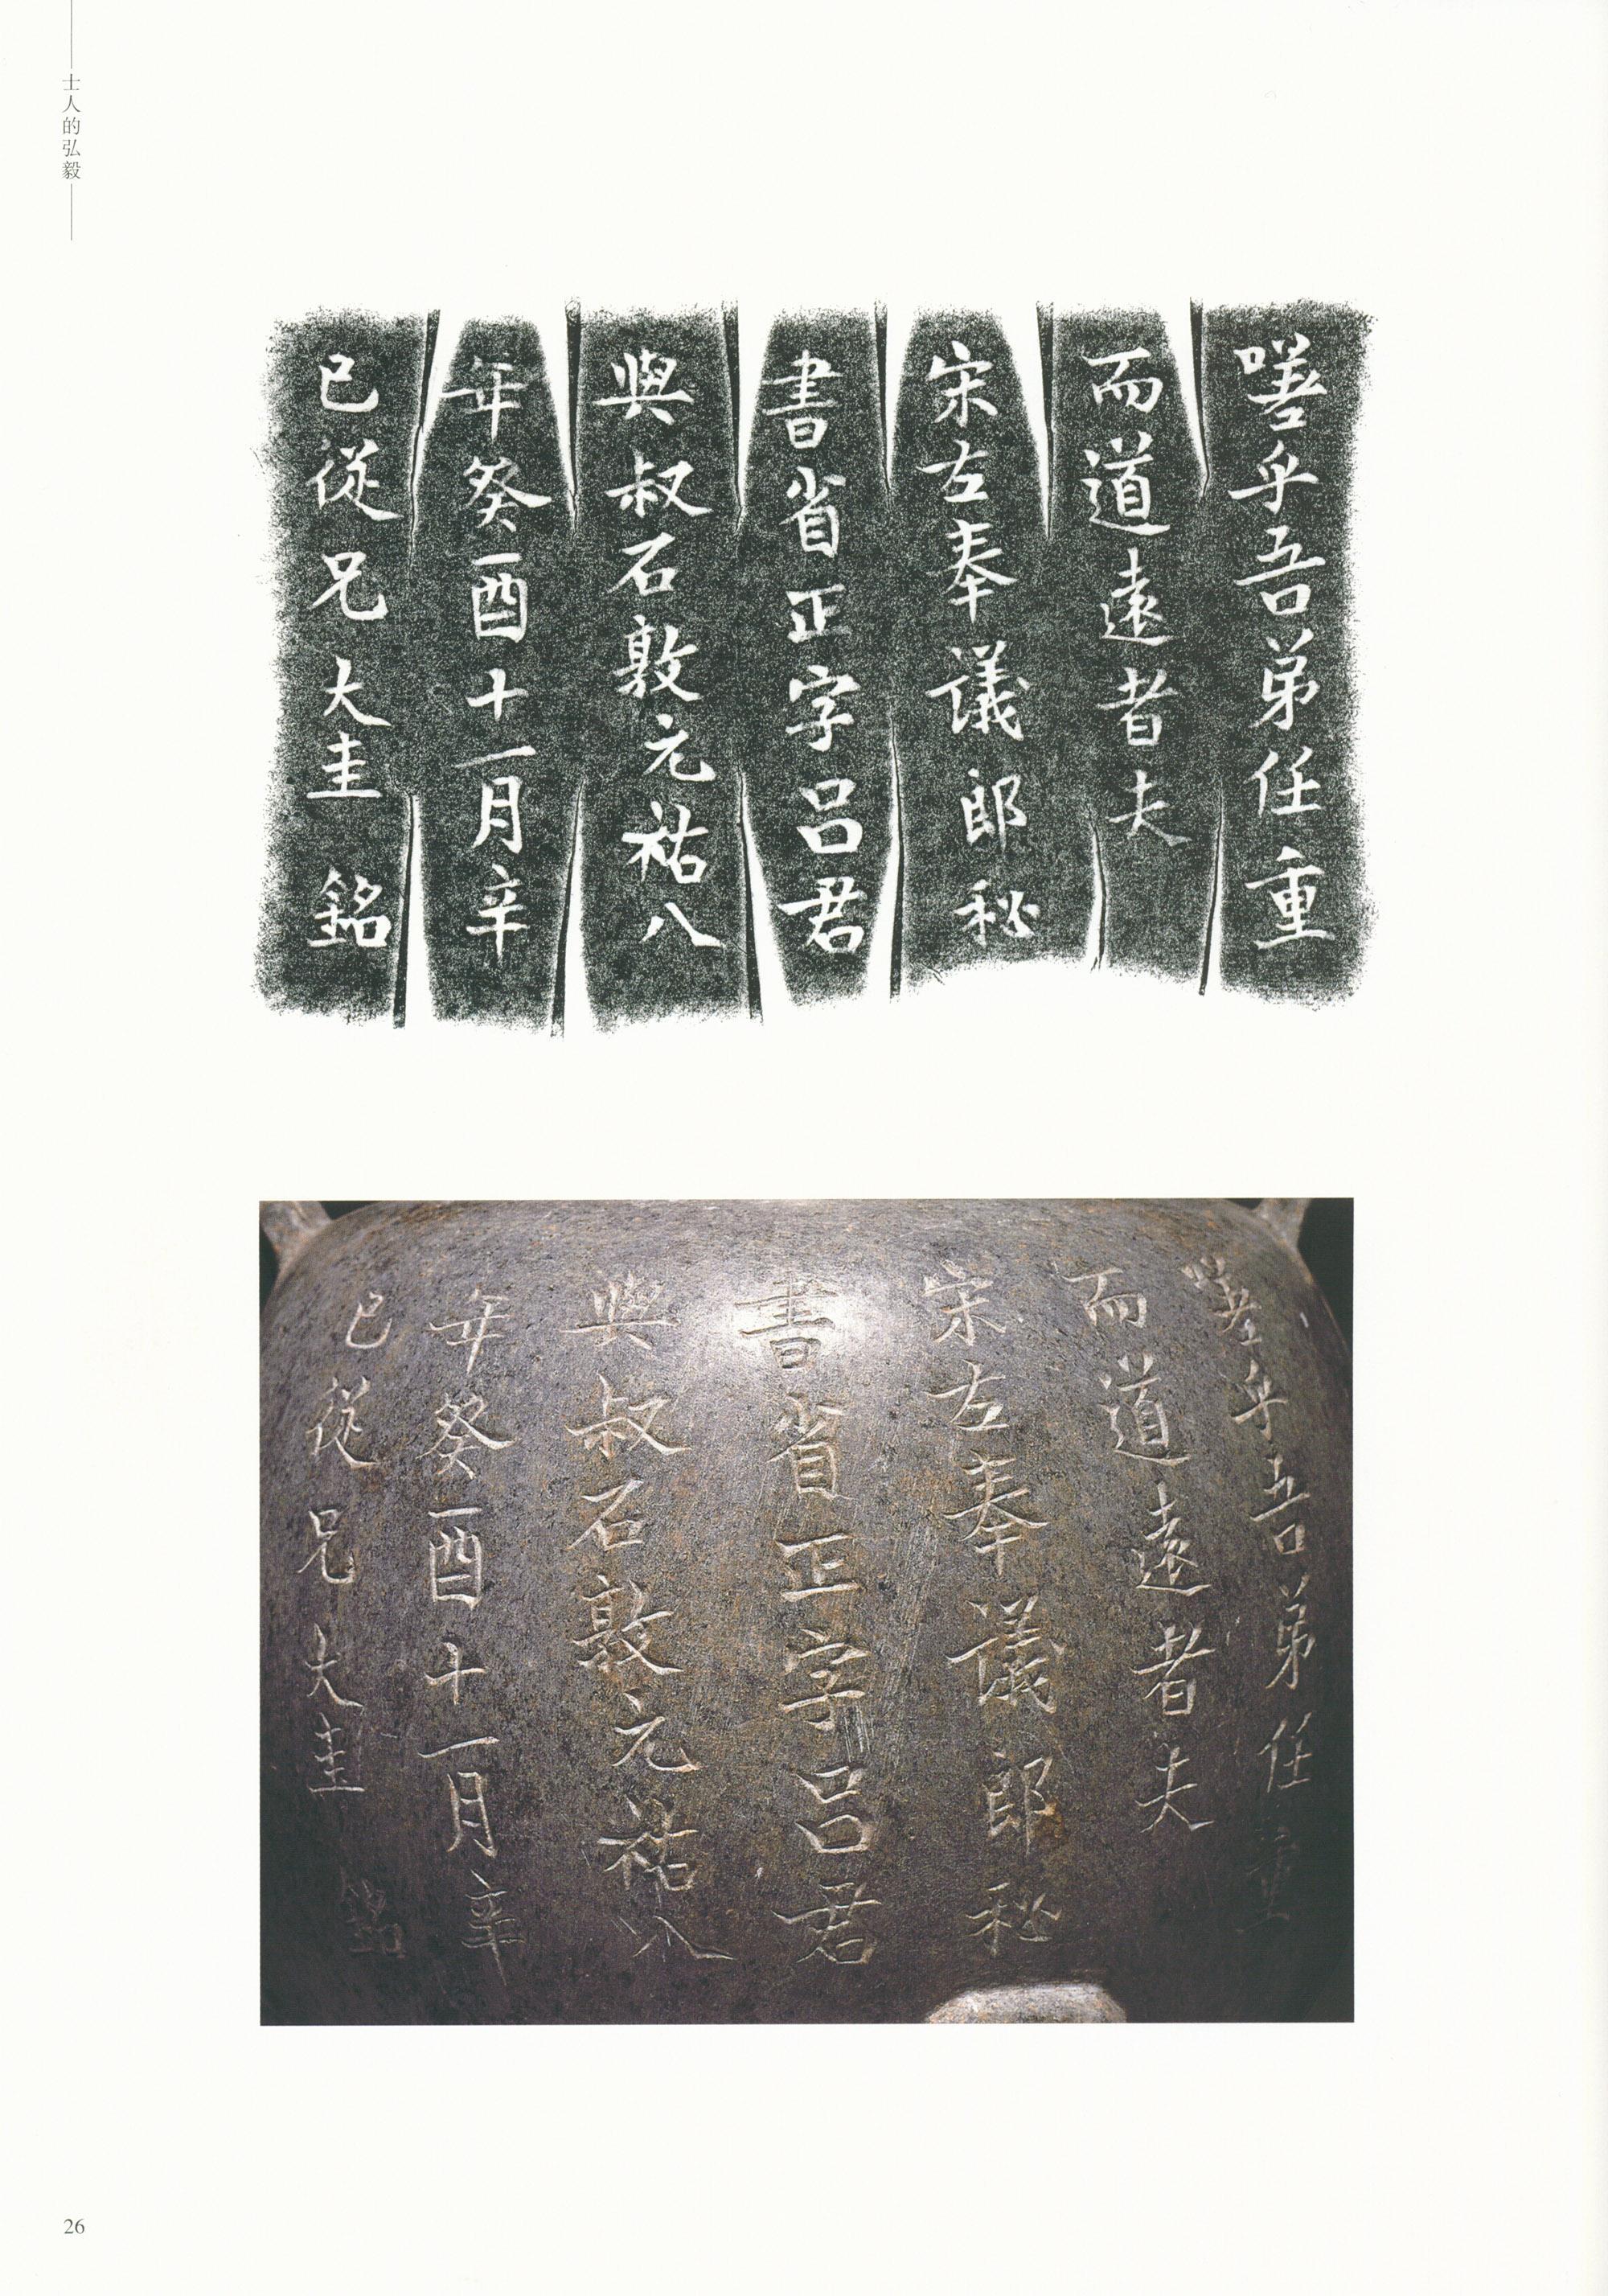 士人的弘毅
嗟乎吾弟任重
而道遠者夫
宋左奉議郎秘
書省正字呂君
與叔石敦元祐八
年癸酉十一月辛
巳從兄大圭 銘
嗟乎吾弟任重
而道遠者夫
宋左奉議郎秘
書省正字呂君
與叔石敦元祐八
年癸酉十一月辛
巳從兄大圭 銘
26